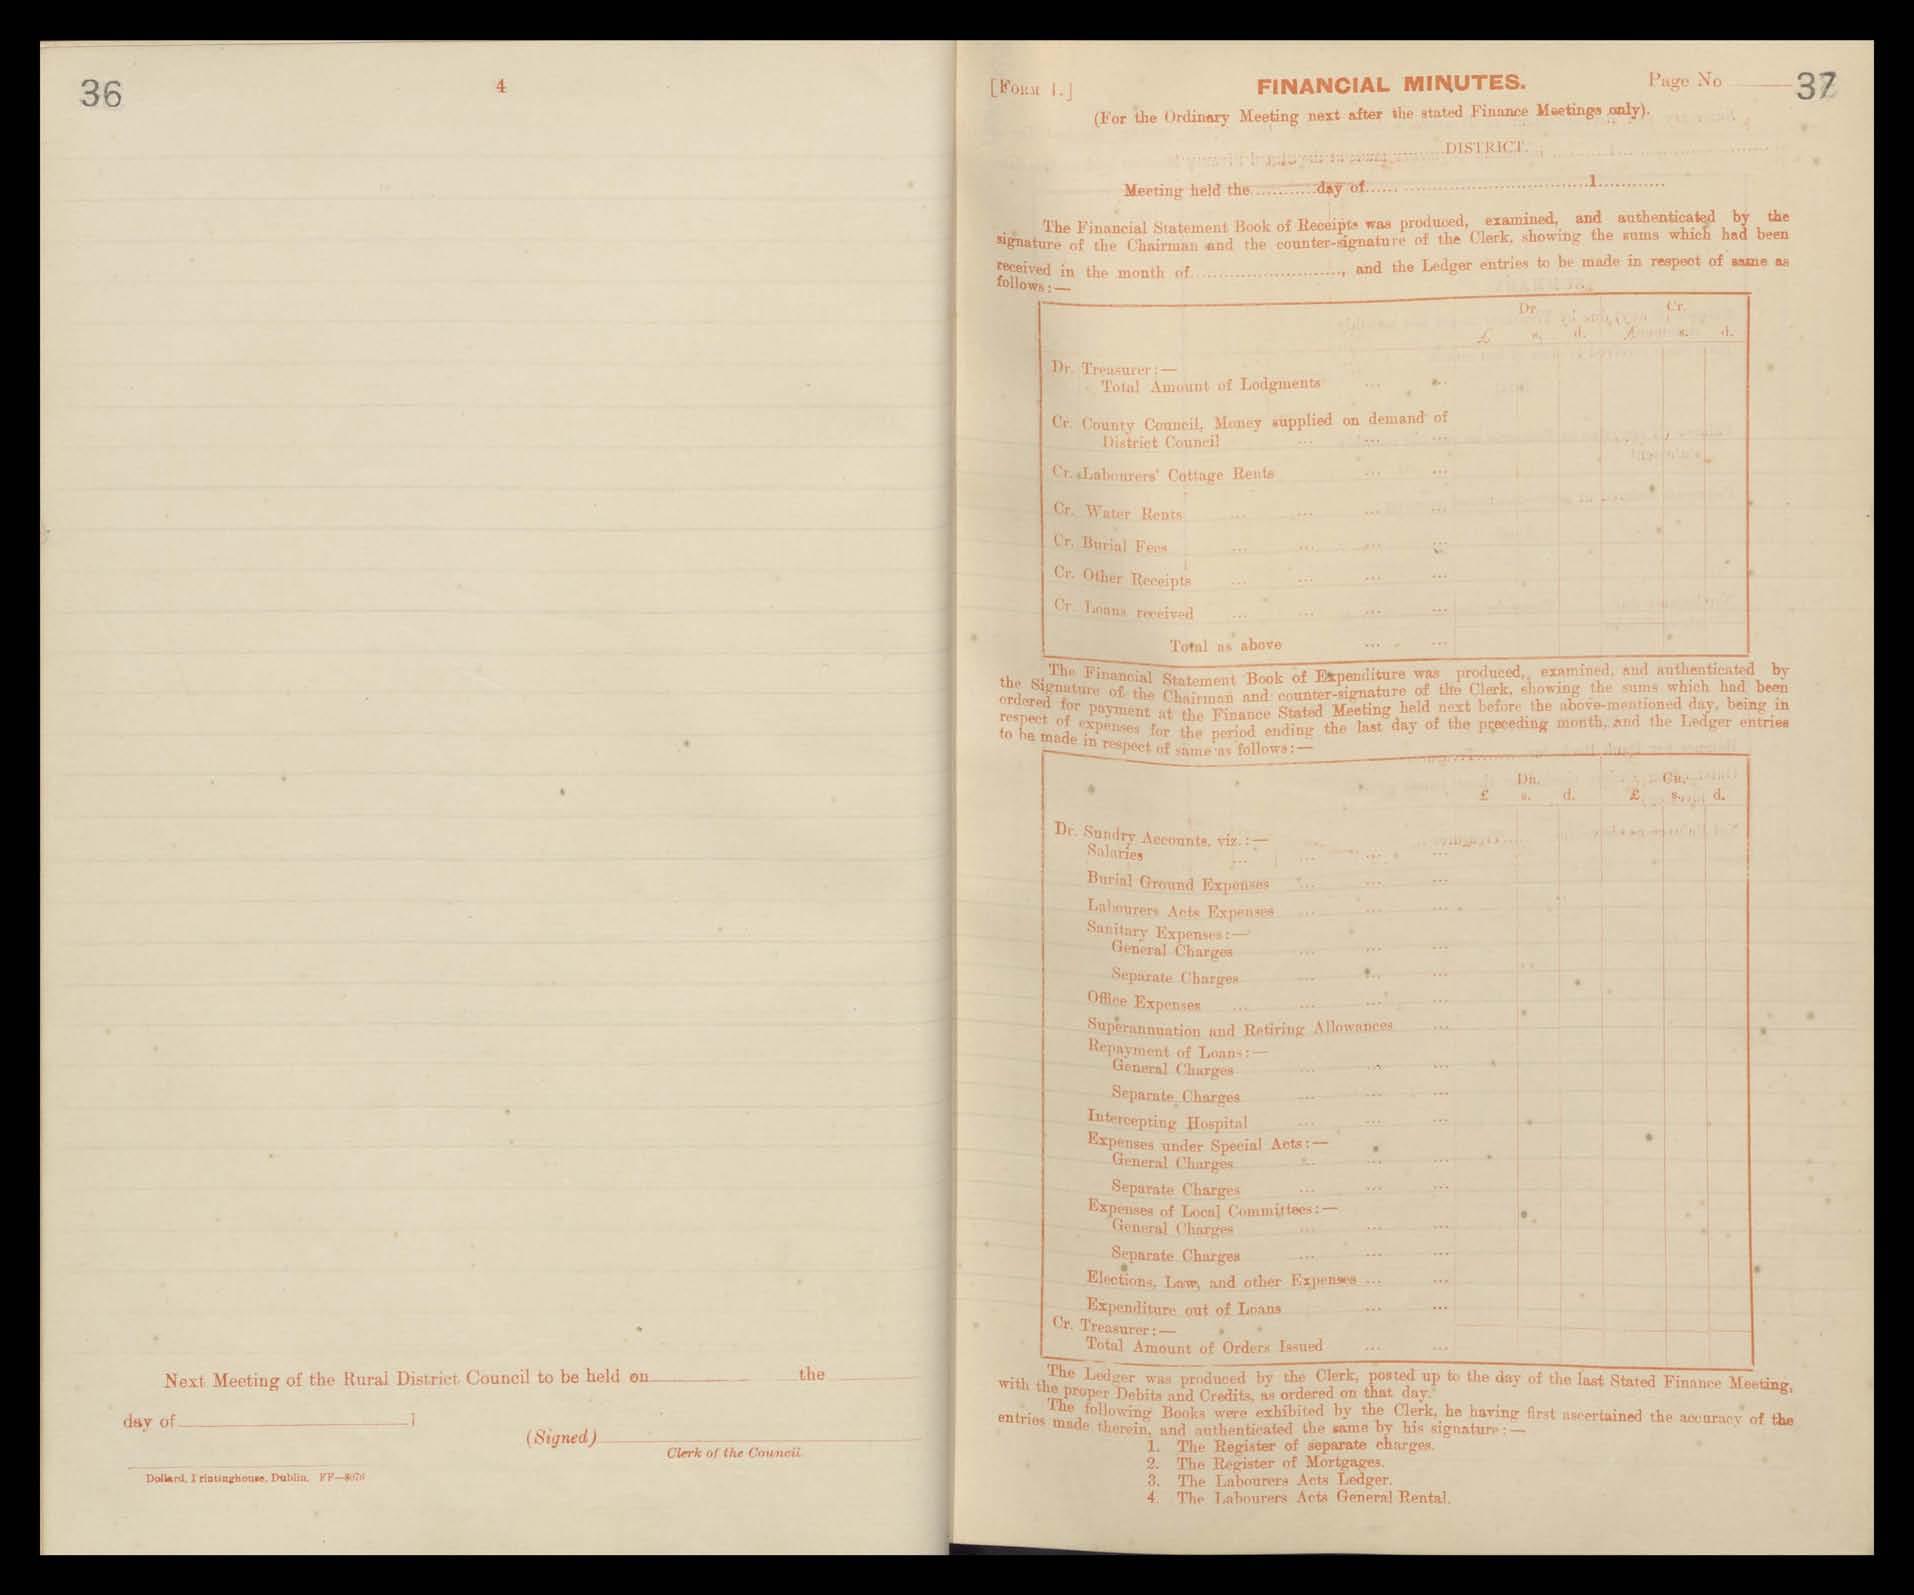 36
4
Next Meeting of the Rural District Council to be held on the
day of 1
(Signed)
Clerk of the Council
Dollard, Printinghouse, Dublin. FF—8676
[FORM 1.]
FINANCIAL MINUTES.
Page No
37
(For the Ordinary Meeting next after the stated Finance Meetings only).
DISTRICT.
Meeting held the............day of...... .................................1............
The Financial Statement Book of Receipts was produced, examined, and authenticated by the
signature of the Chairman and the counter-signature of the Clerk, showing the sums which had been
received in the month of..........................., and the Ledger entries to be made in respect of same as
follows:—
Dr. Cr.
£ s. d. £ s. d.
Dr. Treasurer:—
Total Amount of Lodgments ... ...
Cr. County Council, Money supplied on demand of
District Council ... ... ...
Cr. Labourers' Cottage Rents ... ...
Cr. Water Rents ... ... ... ...
Cr. Burial Fees ... ... ... ...
Cr. Other Receipts ... ... ... ...
Cr. Loans received ... ... ... ...
Total as above ... ...
The Financial Statement Book of Expenditure was produced, examined, and authenticated by
the Signature of the Chairman and counter-signature of the Clerk, showing the sums which had been
ordered for payment at the Finance Stated Meeting held next before the above-mentioned day, being in
respect of expenses for the period ending the last day of the preceding month, and the Ledger entries
to be made in respect of same as follows:—
DR. CR.
£ s. d. £ s. d.
Dr. Sundry Accounts, viz.:—
Salaries ... ... ... ...
Burial Ground Expenses ... ... ...
Labourers Acts Expenses ... ... ...
Sanitary Expenses:—
General Charges ... ... ...
Separate Charges ... ... ...
Office Expenses ... ... ... ...
Superannuation and Retiring Allowances ...
Repayment of Loans:—
General Charges ... ... ...
Separate Charges ... ... ...
Intercepting Hospital ... ... ...
Expenses under Special Acts:—
General Charges ... ... ...
Separate Charges ... ... ...
Expenses of Local Committees:—
General Charges ... ... ...
Separate Charges ... ... ...
Elections, Law, and other Expenses ... ...
Expenditure out of Loans ... ...
Cr. Treasurer:—
Total Amount of Orders Issued ... ...
The Ledger was produced by the Clerk, posted up to the day of the last Stated Finance Meeting,
with the proper Debits and Credits, as ordered on that day.
The following Books were exhibited by the Clerk, he having first ascertained the accuracy of the
entries made therein, and authenticated the same by his signature:—
1. The Register of separate charges.
2. The Register of Mortgages.
3. The Labourers Acts Ledger.
4. The Labourers Acts General Rental.